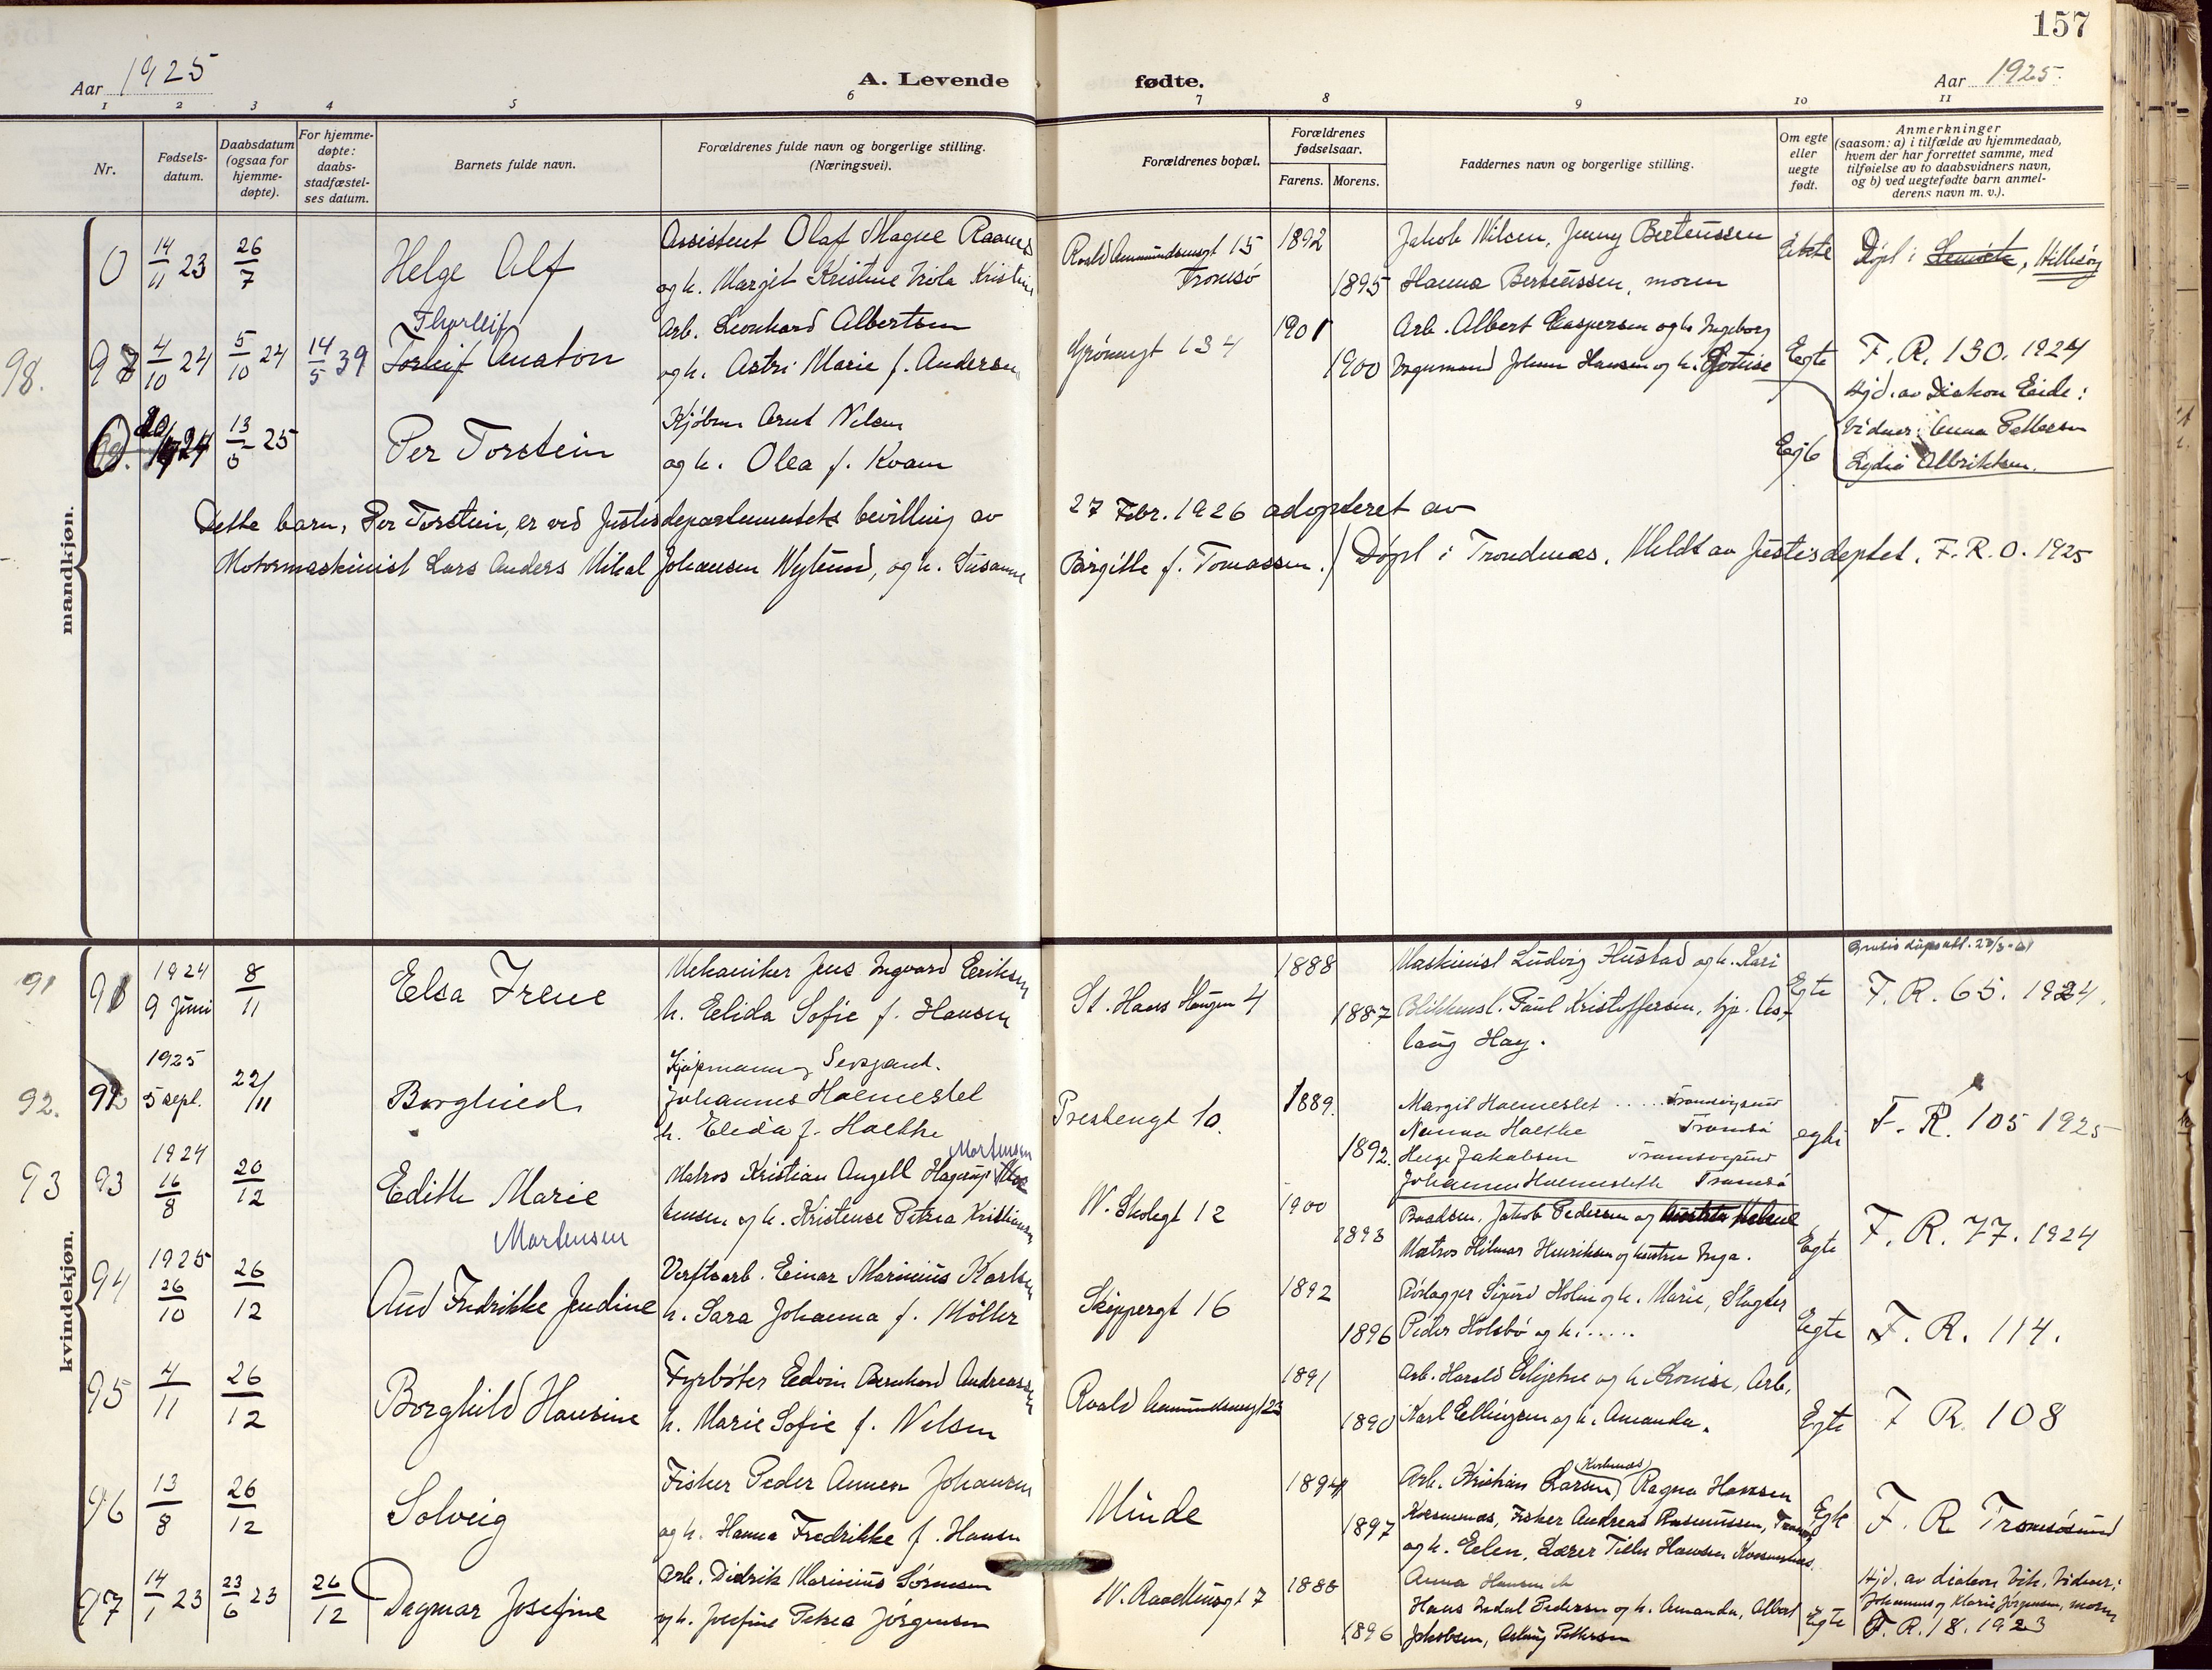 157
Aar 1925
A. Levende fødte.
Aar 1925.
1 2 3 4 5 6 7 8 9 10 11
Nr.
Fødsels-
datum.
Daabsdatum
(ogsaa for
hjemme-
døpte).
For hjemme-
døpte:
daabs-
stadfæstel-
ses datum.
Barnets fulde navn.
Forældrenes fulde navn og borgerlige stilling.
(Næringsvei).
Forældrenes bopæl.
Forældrenes
fødselsaar.
Farens. Morens.
Faddernes navn og borgerlige stilling.
Om egte
eller
uegte
født.
Anmerkninger
(saasom: a) i tilfælde av hjemmedaab,
hvem der har forrettet samme, med
tilføielse av to daabsvidners navn,
og b) ved uegtefødte barn anmel-
derens navn m. v.).
mandkjøn.
0 14/11 23 26/7 Helge Alf
Assistent Olaf Magne
og h. Margit Kristine
Roald Amundsensgt 15
Tromsø
1892
1895
Jakob Nilsen, Jenny Berteussen
Hanna Berteussen, moren
Ekte
Døpt i Lenvik, Hillesøy
98. 97 4/10 24 5/10 24 14/5 39
Thorleif
Torleif Anaton
Arb. Leonhard Albertsen
og h. Astri Marie f. Andersen
Grønnegt 134
1901
1900
Arb. Albert Caspersen og h. Ingeborg
Vognmand Johan Hansen og h. Lovise
Egte
F. R. 130. 1924
Hjd. av Diakon Eide:
Vidner: Anna Pettersen
Lydia Albriktsen.
0 24 13/5 25 Per Torstein
Kjøbm. Arnt Nilsen
og h. Olea f. Kvam
Dette barn, Per Torstein, er ved Justisdepartementets bevilling av 27 Febr. 1926 adopteret av
Motormaskinist Lars Anders Mikal Johansen Nylund, og h. Susanne Birgitte f. Tomassen. / Døpt i Trondenes. Meldt av Justisdeptet. F. R. 0. 1925
kvindekjøn.
91 91 1924 9 Juni 8/11 Elsa Irene
Mekaniker Jens Ingvard Eriksen
h. Elida Sofie f. Hansen
St. Hans Haugen 4
1888
1887
Maskinist Ludvig Hustad og h. Kari
Blikkensl. Paul Kristoffersen, hp. As-
laug Hay.
Egte
F. R. 65. 1924.
92. 92 1925 5 sept. 22/11 Borghild
Kjøpmann, Sersjant.
Johannes Holmeslet
h. Elida f.
Prestengt 10.
1889.
1892.
Margit Holmeslet ..... Tromsøysund
Tromsø
Helge Jakobsen Tromsøysund
Johannes Holmesleth Tromsø
egte
F. R. 105 1925
93 93 1924 16/8 20/12 Edith Marie
Mortensen
Mortensen
Matros Kristian Angell Hagerup
tensen og h. Kristense Petrea Kristiansen
N. Skolegt 12
1900
1898
Baadsm. Jakob Pedersen og hustru Helene
Matros Hilmar Henriksen og hustru Inga.
Egte
F. R. 77. 1924
94 1925 26/10 26/12 Aud Fredrikke Jendine
Verftsarb. Einar Marinius Karlsen
h. Sara Johanna f. Möller
Skippergt 16
1892
1896
Sigurd Holm og h. Marie, Slagter
Peder Holsbø og h. .....
Egte
F. R. 114.
95 4/11 26/12 Borghild Hansine
Fyrbøter Edvin Bernhard Andreassen
h. Marie Sofie f. Nilsen
Roald Amundsensgt 23
1891
1890
Arb. Harald og h. Lovise, Arb.
Karl Ellingsen og h. Amanda.
Egte
F R. 108
96 13/8 26/12 Solveig
Fisker Peder Johansen
og h. Hanna Fredrikke f. Hansen
Minde
1894
1897
Arb. Kristian Larsen, Ragna Hansen
Fisker Andreas Rasmussen,
og h. Elen, Lærer Hansen
Egte
F. R Tromsøsund
97 14/1 23 23/6 23 26/12 Dagmar Josefine
Arb. Didrik Marinius Sørensen
og h. Josefine Petrea Jørgensen
N. Raadhusgt 7
1888
1896
Anna
Hans Indal Pedersen og h. Amanda, Albert
Jakobsen, Aslaug Pettersen
Egte
Hjd. av diakon Vik. Vidner:
Johannes og Marie Jørgensen, moren
F. R. 18. 1923